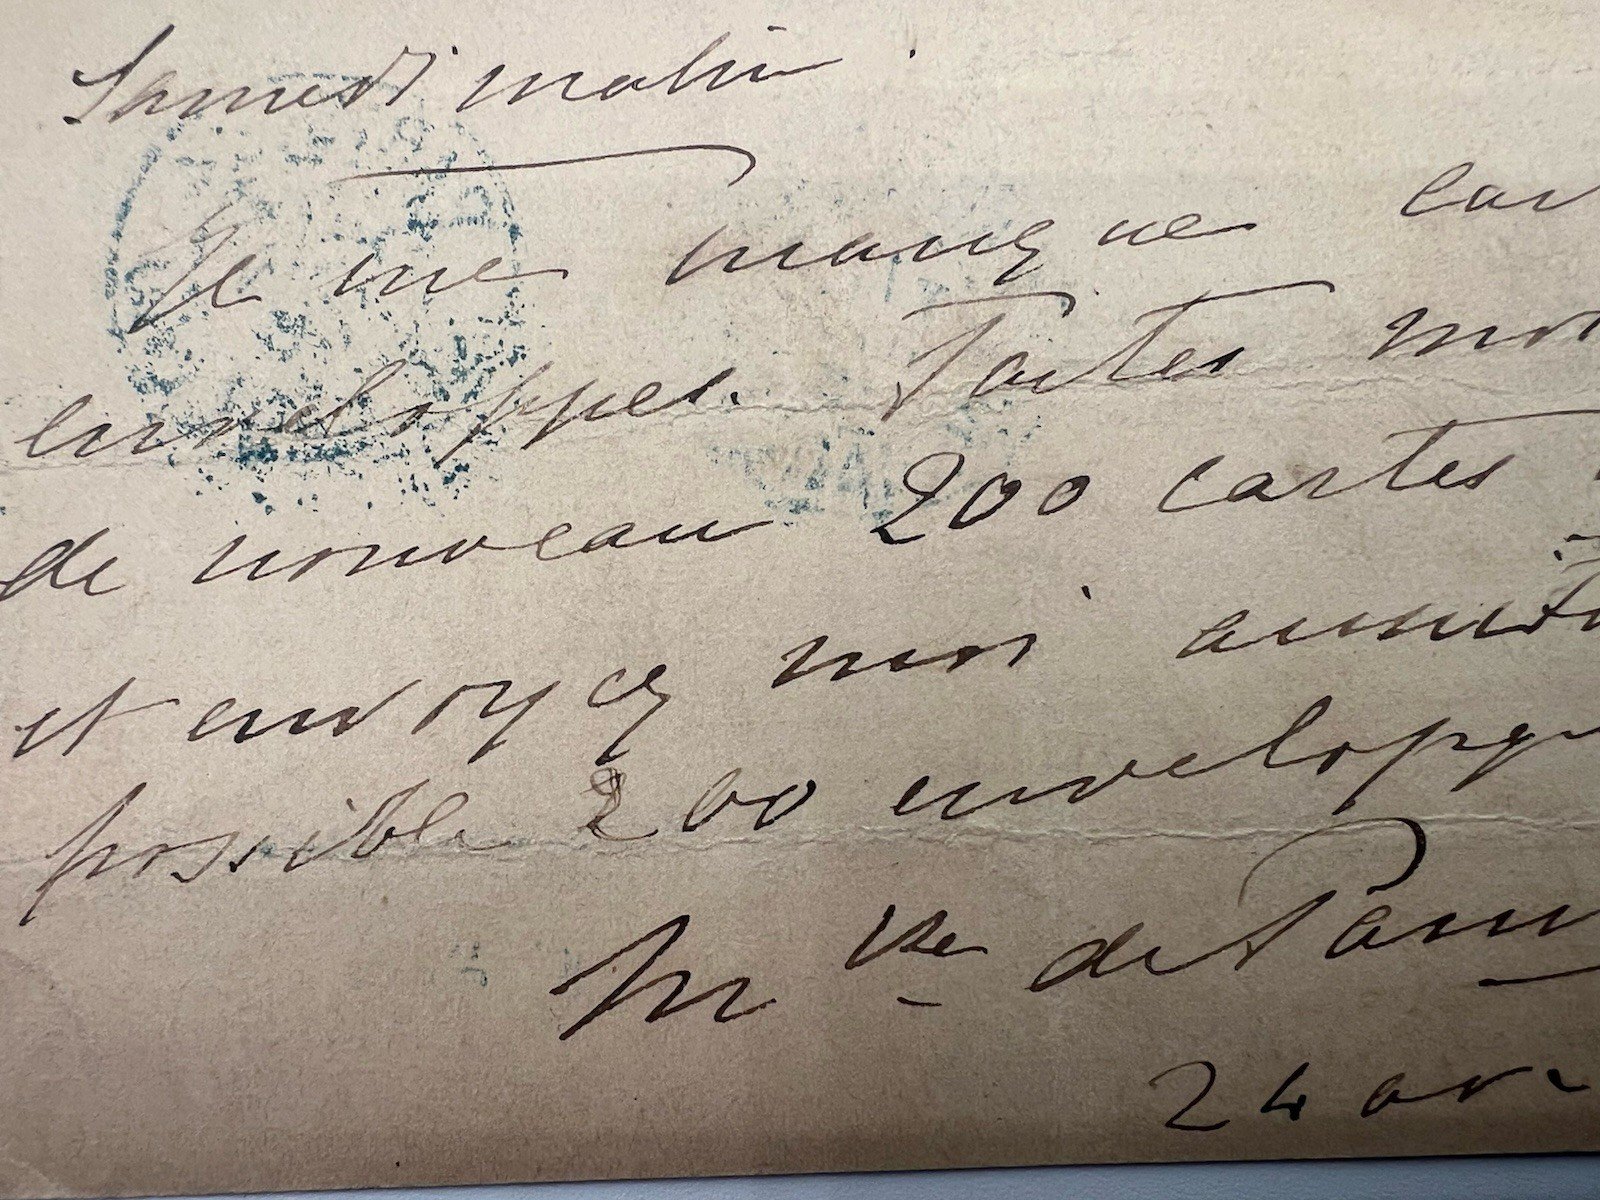 Samedi matin.
Je me manque car
enveloppes. Faites moi
de nouveau 200 cartes
et envoyez moi aussitôt
possible 200 enveloppe
Mise de
24 av